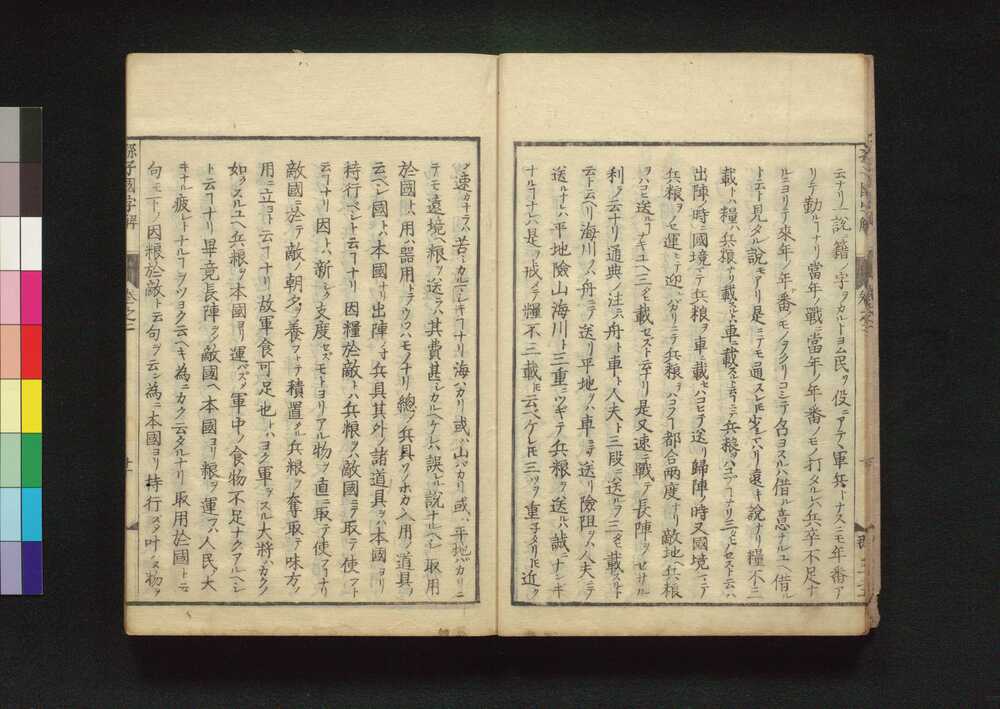 云ナリ一説ニ籍ノ字ヲカルトヨム民ヲ役ニアテヽ軍兵トナスニモ年番ア
リテ勤ルヿナリ當年ノ戰ニ當年ノ年番ノモノ打タルレバ兵卒不足ナ
ルニヨリテ來年ノ年番ノモノヲクリコシテ名ヨスルハ借ル意ナルユヘ借ル
ト云ト見タル說モアリ是ニテモ通スレ𪜈少シマハリ遠キ說ナリ糧不三
載トハ糧ハ兵粮ナリ載スルトハ車ニ載スルト云テ兵粮ヲハコブヿナリ三タビノセズト云ハ
出陣ノ時ニ國境マテ兵粮ヲ車ニ載セハコビテ送リ歸陣ノ時又國境マテ
兵粮ヲノセ運ヒテ迎ハカリニテ兵粮ヲハコブヿ都合兩度ナリ敵地ヘ兵粮
ヲハコビ送ルヿナキユヘ三タビ載セズト云ナリ是又速ニ戰テ長陣ヲセザル
利ヲ云ナリ通典ノ注ニハ舟ト車ト人夫ト三段ニ送ルヲ三タビ載スルト
云ト云ヘリ海川ヲバ舟ニテ送リ平地ヲバ車ニテ送リ險阻ヲバ人夫ニテ
送ルナレハ平地險山海川ト三重ニツギテ兵粮ヲ送ルハ誠ニナンギ
ナルヿナレハ是ヲ戒メテ糧不三載𪜈云ベケレ𪜈三ツヲ重子タリ𪜈近ク
メ速カナラハ苦シカルマシキヿナリ海ハカリ或ハ山バカリ或ハ平地バカリニ
テモ遠境ヘ粮ヲ送ラハ其費甚シカルヘケレハ誤レル說ナルヘシ取用
於國トハ用ハ器用トテウツハモノナリ總シテ兵具ソノホカ入用ノ道具ヲ
云ベシ國トハ本國ナリ出陣ノ時兵具其外ノ諸道具ヲハ本國ヨリ
持行ベシト云ヿナリ因糧於敵トハ兵粮ヲハ敵國ニテ取テ使フト
云ヿナリ因トハ新シク支度セズモトヨリアル物ヲ直ニ取テ使フヿナリ
敵國ニ於テ敵ノ朝夕ノ養フトテ積置タル兵粮ヲ奪取テ味方ノ
用ニ立ヨト云ヿナリ故軍食可足也トハヨク軍ヲスル大將ハカクノ
如クスルユヘ兵粮ヲ本國ヨリ運バズシテ軍中ノ食物不足ナクアルヘシ
ト云ヿナリ畢竟長陣ヲシ敵國ヘ本國ヨリ粮ヲ運フハ人民ノ大
キナル疲レトナルヿヲツヨク云ヘキ為ニカク云タルナリ取用於國ト云
句モ下ノ因粮於敵ト云句ヲ云ン為ニ本國ヨリ持行スシテ叶ハヌ物ヲ
孫子國字解 卷之二